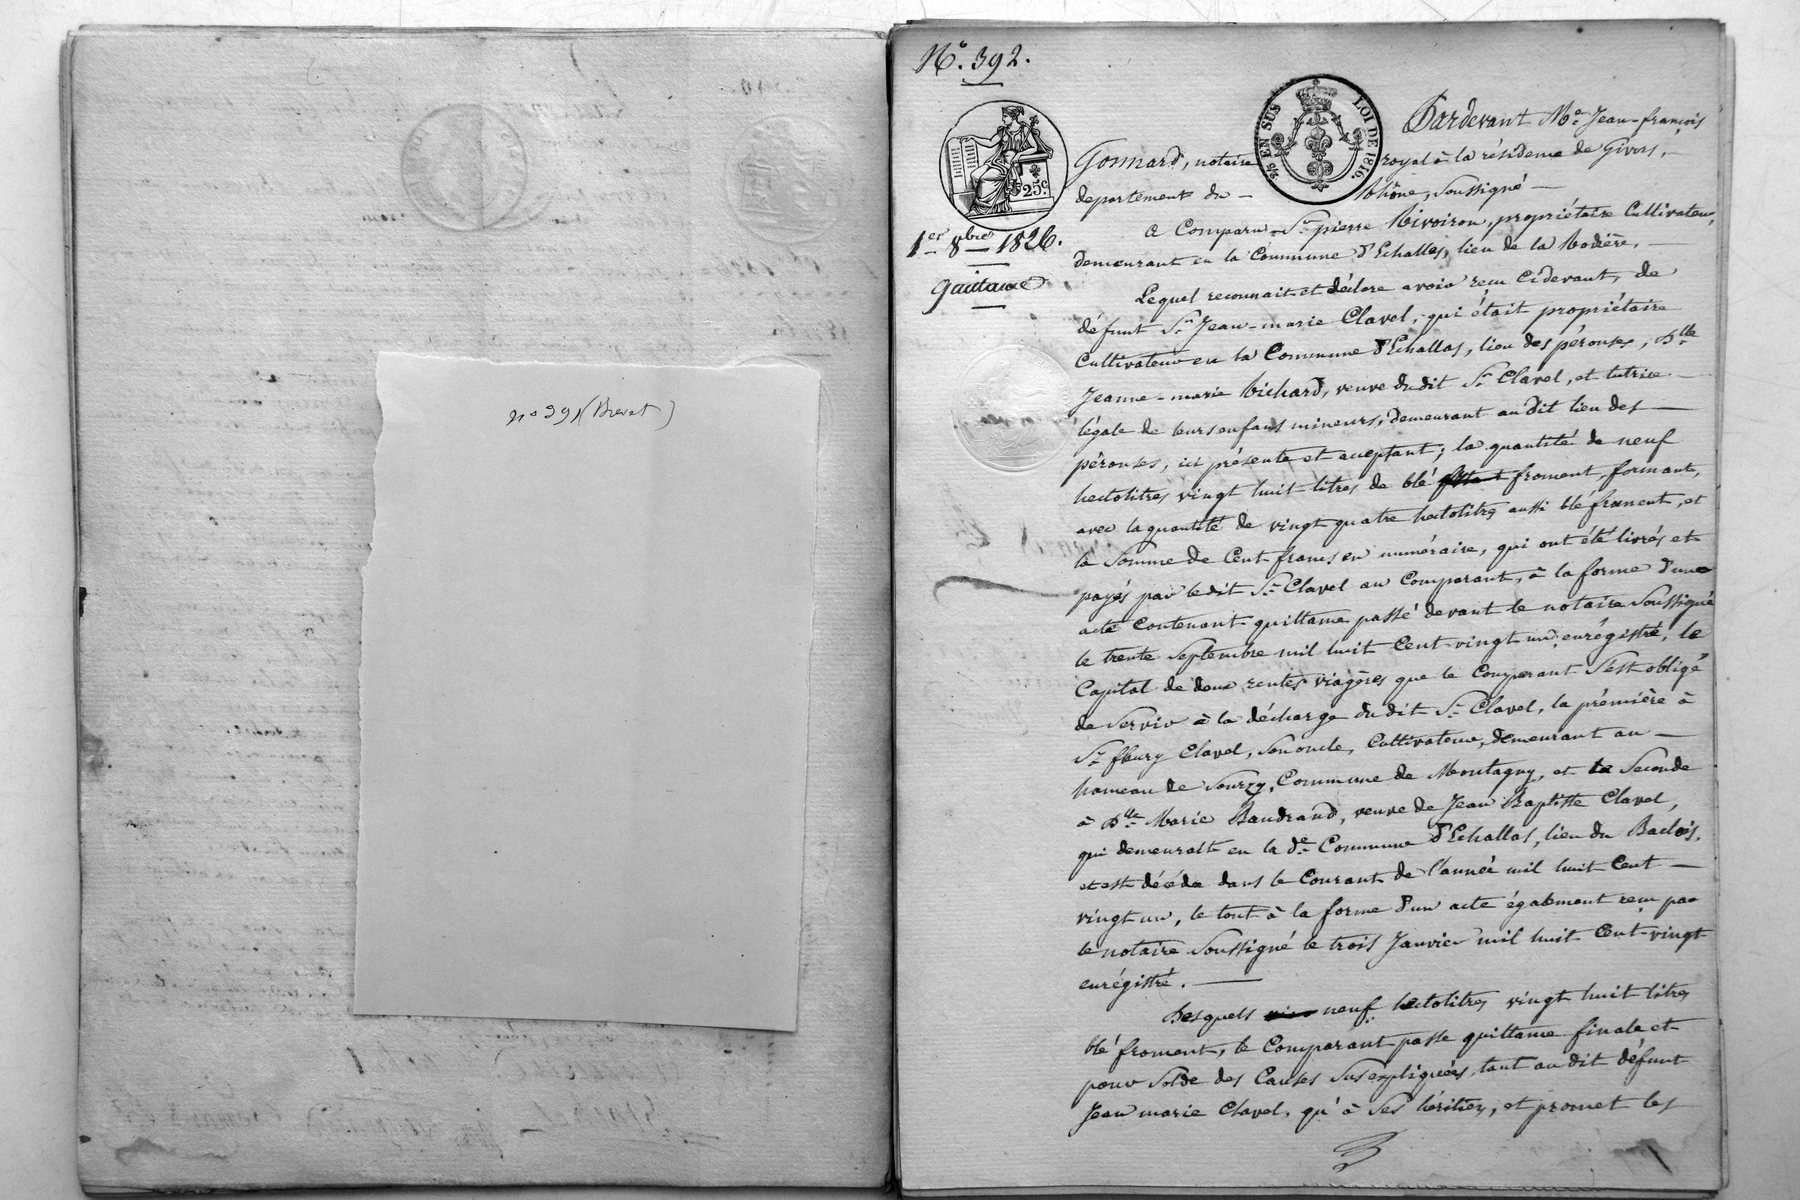 no 391 (Brevet)
N.° 392.
2/10 EN SUS
LOI DE 1816.
25c
1er 8bre 1826.
quittance
Pardevant Me Jean-françois
Gonnard, notaire royal à la résidence de Givors,
departement du — Rhône, soussigné —
a Comparu Sr pierre Rivoiron, propriétaire Cultivateur,
demeurant en la Commune d'Echallas, lieu de la Rodière, —
Lequel reconnait et déclare avoir reçu cidevant, de
défunt Sr Jean-marie Clavel, qui était propriétaire
Cultivateur en la Commune d'Echallas, lieu des pérouses, Dlle
Jeanne-marie Richard, veuve dudit Sr Clavel, et tutrice —
légale de leurs enfans mineurs, demeurant au dit lieu des —
pérouses, ici présente et acceptant; la quantité de neuf
hectolitres vingt huit litres de blé froment, formant,
avec la quantité de vingt quatre hectolitres aussi blé froment, et
la Somme de Cent francs en numéraire, qui ont été livrés et
payés par le dit Sr Clavel au Comparant, à la forme d'une
acte Contenant quittance passé devant le notaire Soussigné
le trente Septembre mil huit Cent vingt un, enrégistré, le
Capital de deux rentes viagères que le Comparant S'est obligé
de Servir à la décharge dudit Sr Clavel, la première à
Sr fleury Clavel, Son oncle, Cultivateur, demeurant au —
hameau de Sourzy, Commune de Montagny, et la Seconde
à Dlle Marie Baudrand, veuve de Jean Baptiste Clavel,
qui demeurait en la de Commune d'Echallas, lieu du
et est décédée dans le Courant de l'année mil huit Cent —
vingt un, le tout à la forme d'un acte également reçu par
le notaire Soussigné le trois Janvier mil huit Cent vingt
enrégistré. —
Desquels neuf hectolitres vingt huit litres
blé froment, le Comparant passe quittance finale et
pour Solde des Causes Susexpliquées, tant au dit défunt
Jean marie Clavel, qu'à Ses héritiers, et promet les